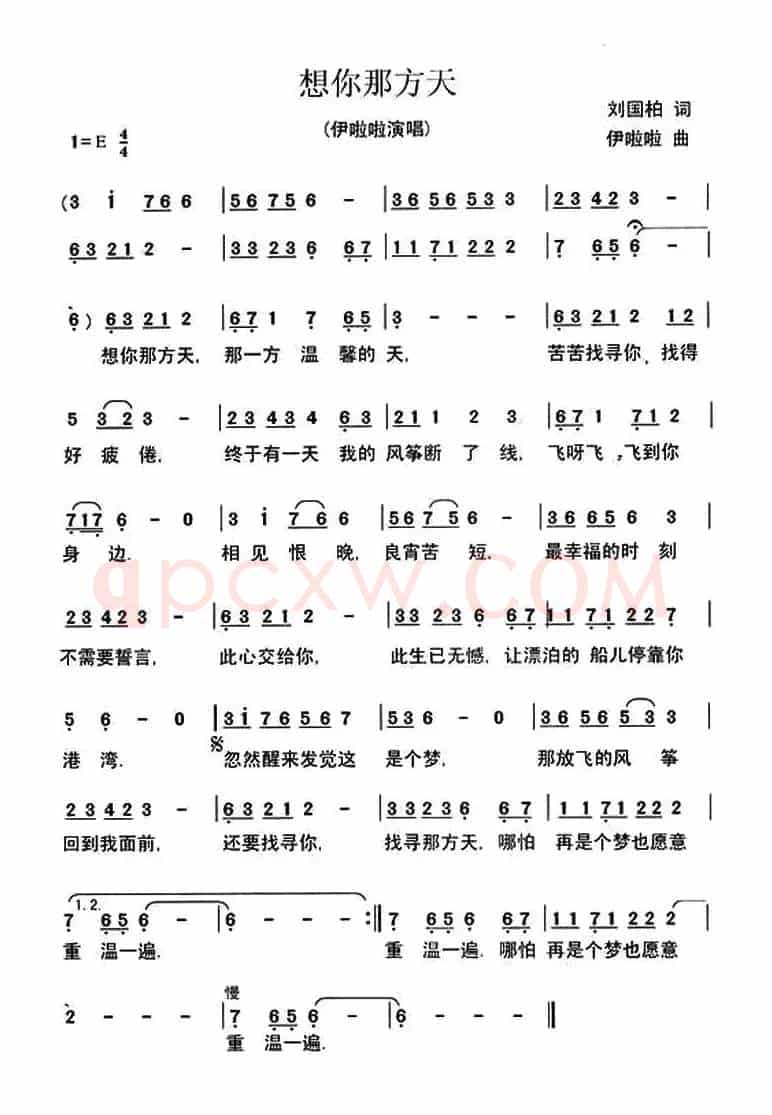 想你那方天
(伊啦啦演唱)
刘国柏 词
1=E 4/4
伊啦啦 曲
(3 i 766 |56 756 - |36 56 53 3 |23 423 - |
63 212 - |33 236 67 |11 71 222 |7 656 - |
6) 63 212 |671 7 65 |3 - - - |63 212 12 |
想你那方天, 那一方 温 馨的 天, 苦苦找寻你, 找得
5 323 - |23 434 63 |211 2 3 |671 712 |
好 疲 倦, 终于有一天 我的 风筝断 了 线, 飞呀飞 , 飞到你
7176 - 0 |3 i 766 |56 756 - |36 56 6 3 |
身 边. 相 见 恨 晚, 良宵苦 短. 最幸福的时 刻
23 423 - |63 212 - |33 236 67 |11 71 22 7 |
不需要誓言, 此心交给你, 此生已无憾. 让漂泊的 船儿停靠你
5 6 - 0 |3i 76 56 7 |536 - 0 |36 56 5 33 |
港 湾. 忽然醒来发觉这 是个梦, 那放飞的风 筝
23 423 - |63 212 - |33 236 67 |11 71 222 |
回到我面前, 还要找寻你, 找寻那方天. 哪怕 再是个梦也愿意
1.2.
7 656 - |6 - - - :||7 656 67 |11 71 222 |
重 温一遍. 重 温一遍. 哪怕 再是个梦也愿意
慢
2 - - - |7 656 - |6 - - - ||
重 温一遍.
qpcxw.COM